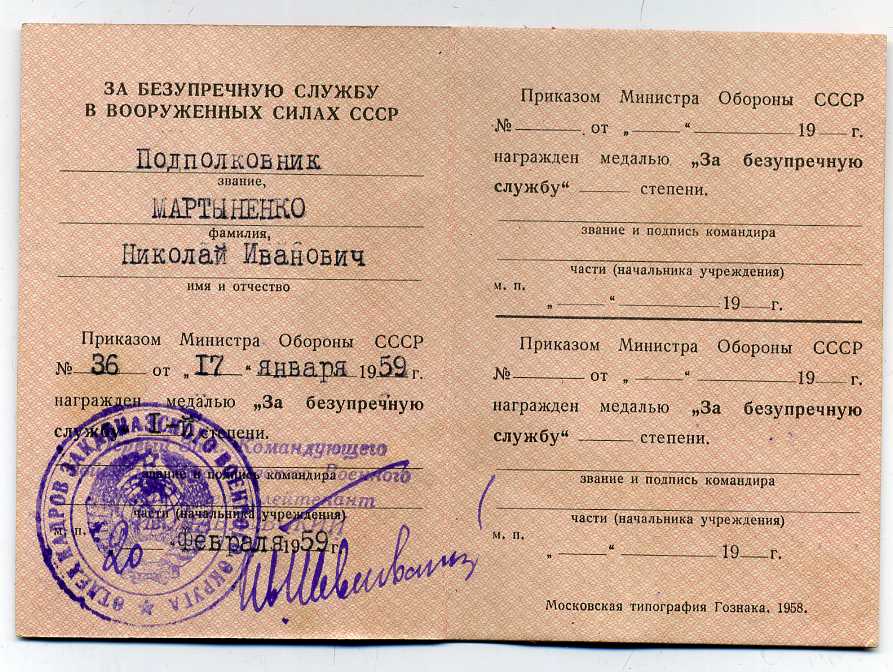 ЗА БЕЗУПРЕЧНУЮ СЛУЖБУ
В ВООРУЖЕННЫХ СИЛАХ СССР
Подполковник
звание,
МАРТЫНЕНКО
фамилия,
Николай Иванович
имя и отчество
Приказом Министра Обороны СССР
№ 36 от „17“ января 1959 г.
награжден медалью „За безупречную
службу“ I-й степени.
Командующего
Военного
звание и подпись командира
лейтенант
части (начальника учреждения)
м. п.
20 февраля 1959 г.
ОТДЕЛ КАДРОВ ЗАКАВКАЗСКОГО ВОЕННОГО ОКРУГА
Приказом Министра Обороны СССР
№ от „ “ 19 г.
награжден медалью „За безупречную
службу“ степени.
звание и подпись командира
части (начальника учреждения)
м. п.
„ “ 19 г.
Приказом Министра Обороны СССР
№ от „ “ 19 г.
награжден медалью „За безупречную
службу“ степени.
звание и подпись командира
части (начальника учреждения)
м. п.
„ “ 19 г.
Московская типография Гознака. 1958.